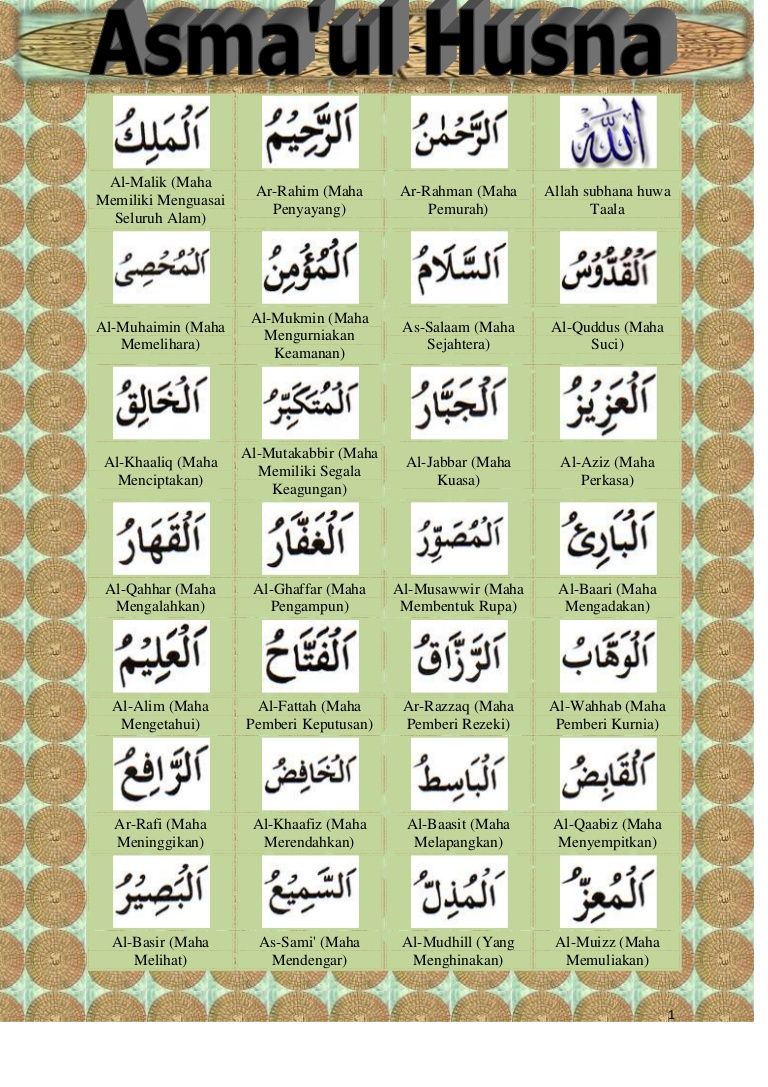 Asma'ul Husna
اَللّٰهُ
Allah subhana huwa
Taala
اَلرَّحْمٰنُ
Ar-Rahman (Maha
Pemurah)
اَلرَّحِيْمُ
Ar-Rahim (Maha
Penyayang)
اَلْمَلِكُ
Al-Malik (Maha
Memiliki Menguasai
Seluruh Alam)
اَلْقُدُّوْسُ
Al-Quddus (Maha
Suci)
اَلسَّلَامُ
As-Salaam (Maha
Sejahtera)
اَلْمُؤْمِنُ
Al-Mukmin (Maha
Mengurniakan
Keamanan)
اَلْمُحْصِىُ
Al-Muhaimin (Maha
Memelihara)
اَلْعَزِيْزُ
Al-Aziz (Maha
Perkasa)
اَلْجَبَّارُ
Al-Jabbar (Maha
Kuasa)
اَلْمُتَكَبِّرُ
Al-Mutakabbir (Maha
Memiliki Segala
Keagungan)
اَلْخَالِقُ
Al-Khaaliq (Maha
Menciptakan)
اَلْبَارِئُ
Al-Baari (Maha
Mengadakan)
اَلْمُصَوِّرُ
Al-Musawwir (Maha
Membentuk Rupa)
اَلْغَفَّارُ
Al-Ghaffar (Maha
Pengampun)
اَلْقَهَارُ
Al-Qahhar (Maha
Mengalahkan)
اَلْوَهَّابُ
Al-Wahhab (Maha
Pemberi Kurnia)
اَلرَّزَّاقُ
Ar-Razzaq (Maha
Pemberi Rezeki)
اَلْفَتَّاحُ
Al-Fattah (Maha
Pemberi Keputusan)
اَلْعَلِيْمُ
Al-Alim (Maha
Mengetahui)
اَلْقَابِضُ
Al-Qaabiz (Maha
Menyempitkan)
اَلْبَاسِطُ
Al-Baasit (Maha
Melapangkan)
اَلْخَافِضُ
Al-Khaafiz (Maha
Merendahkan)
اَلرَّافِعُ
Ar-Rafi (Maha
Meninggikan)
اَلْمُعِزُّ
Al-Muizz (Maha
Memuliakan)
اَلْمُذِلُّ
Al-Mudhill (Yang
Menghinakan)
اَلسَّمِيْعُ
As-Sami' (Maha
Mendengar)
اَلْبَصِيْرُ
Al-Basir (Maha
Melihat)
1